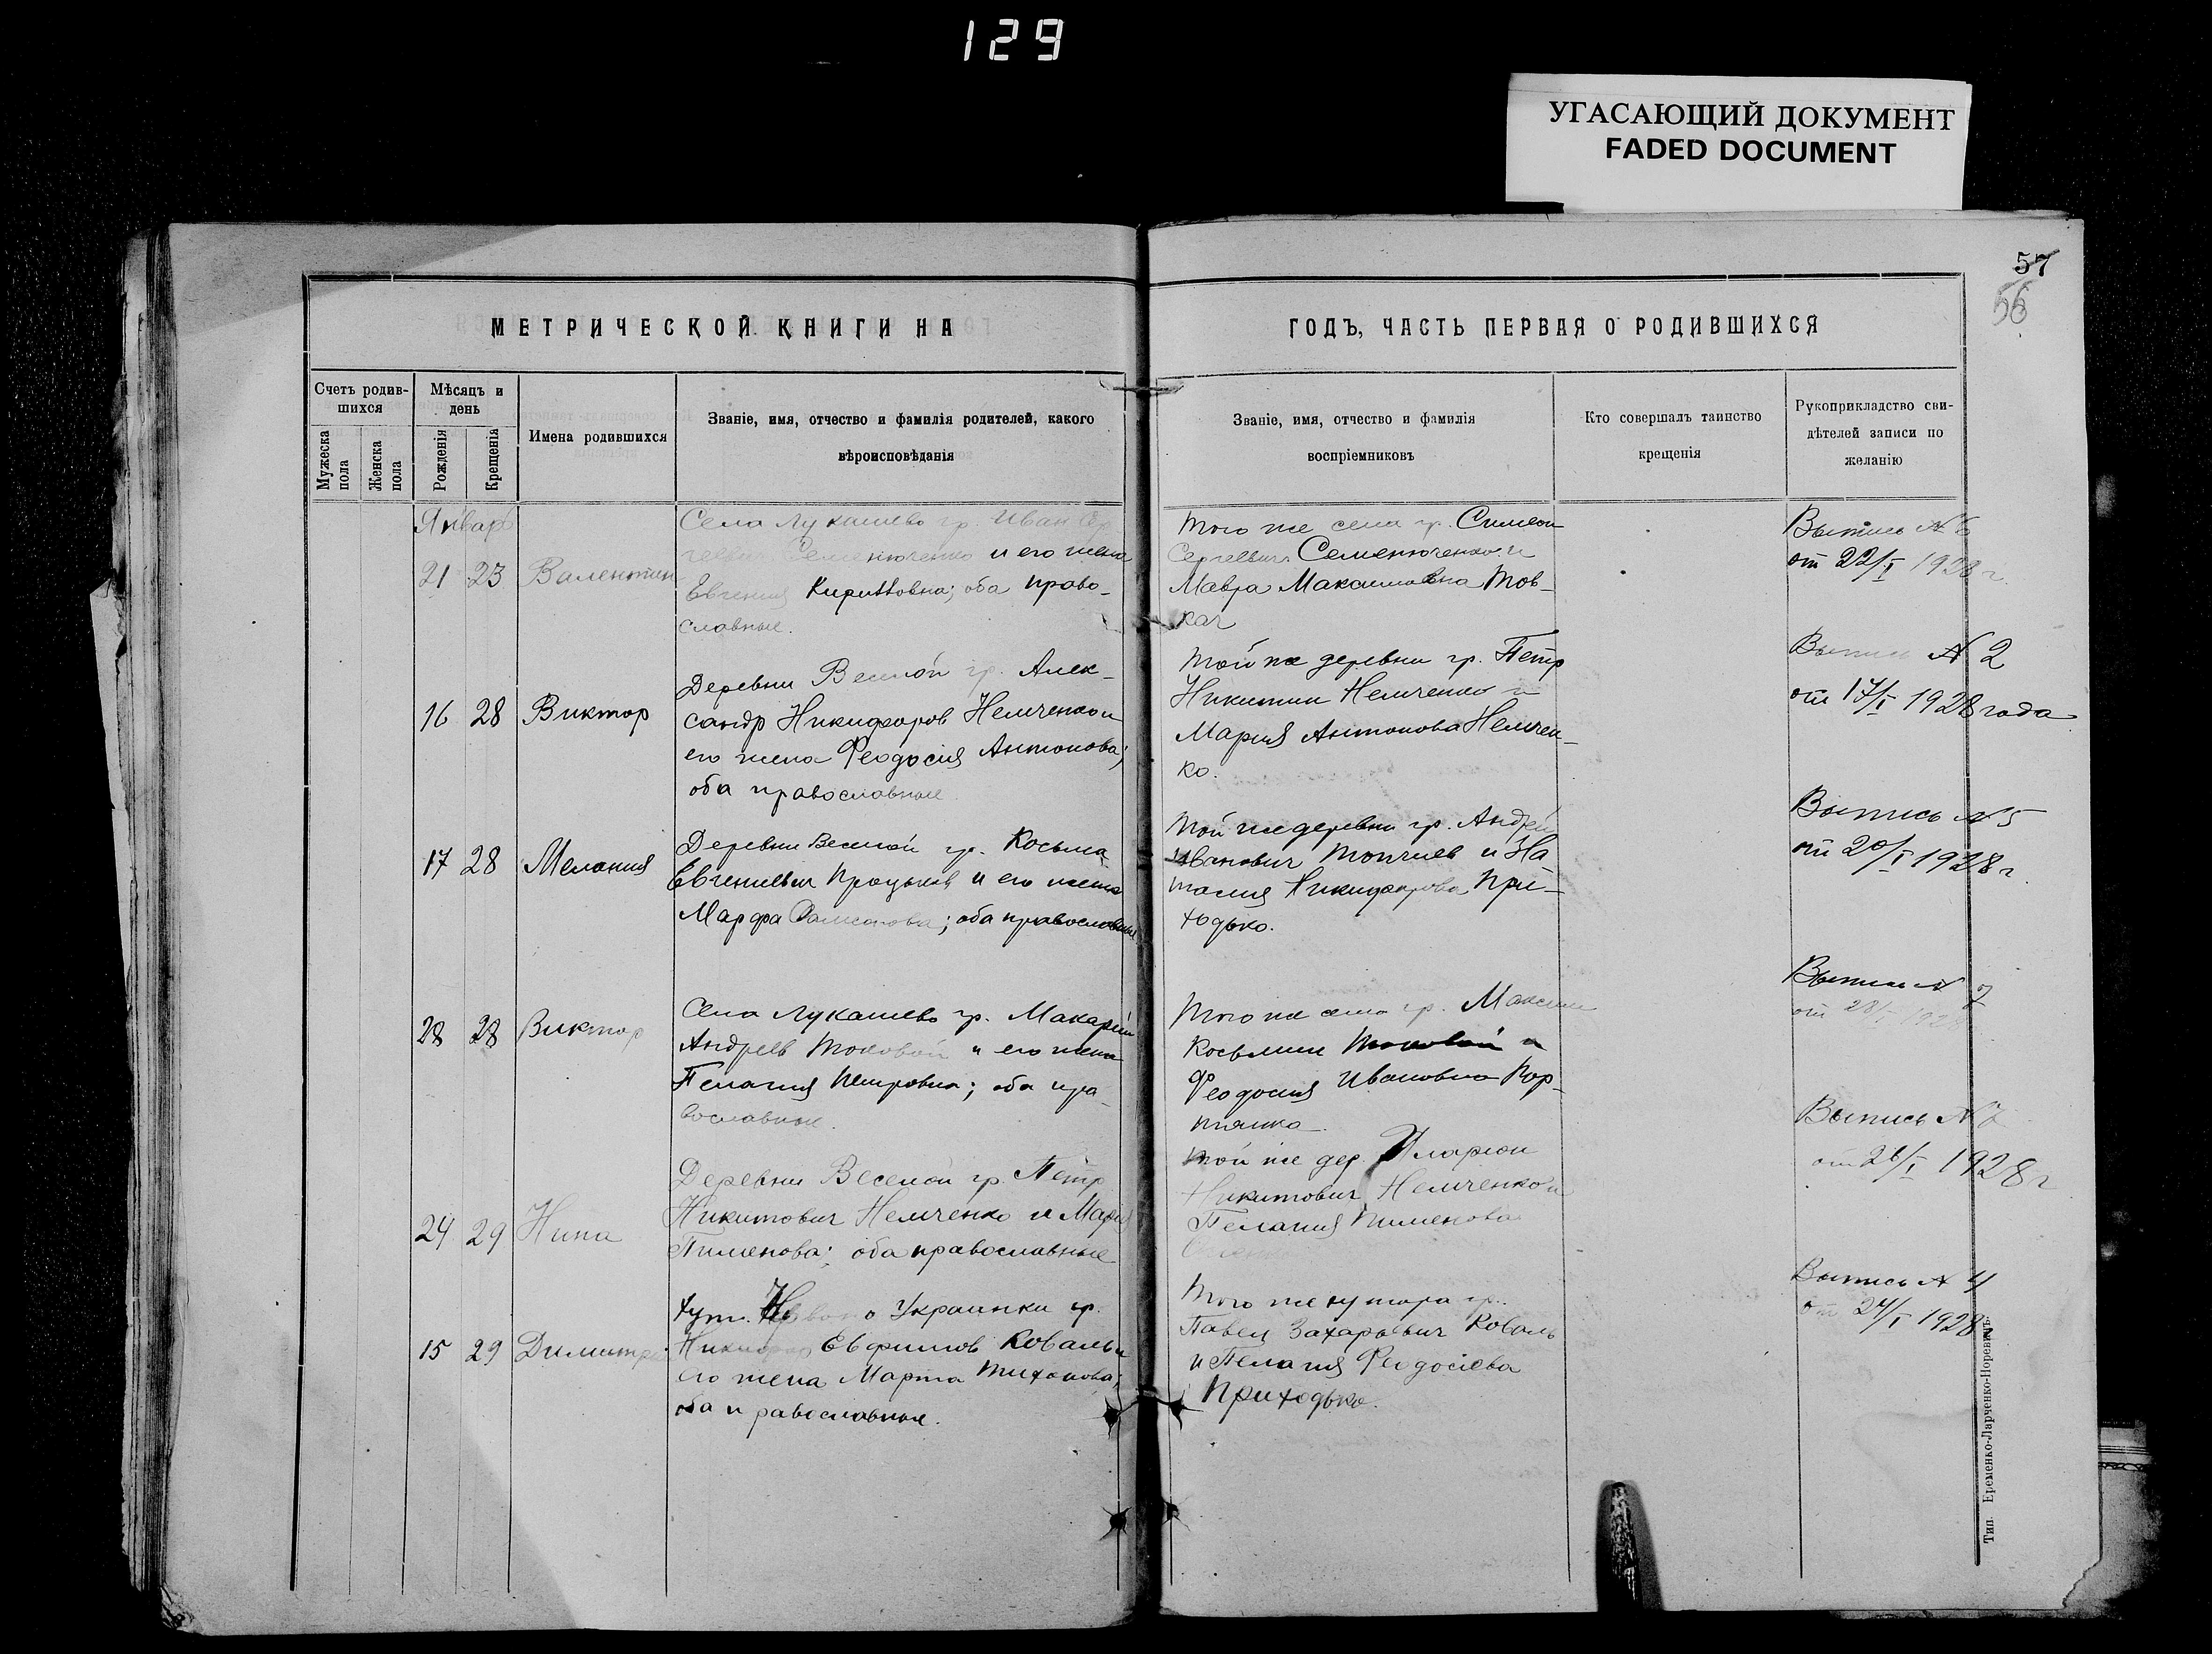 129
УГАСАЮЩИЙ ДОКУМЕНТ
FADED DOCUMENT
57
56
МЕТРИЧЕСКОЙ КНИГИ НА
ГОДЪ, ЧАСТЬ ПЕРВАЯ О РОДИВШИХСЯ
Счетъ родив-
шихся
Мужеска
пола
Женска
пола
Мѣсяцъ и
день
Рожденія
Крещенія
Имена родившихся
Званіе, имя, отчество и фамилія родителей, какого
вѣроисповѣданія
Званіе, имя, отчество и фамилія
воспріемниковъ
Кто совершалъ таинство
крещенія
Рукоприкладство сви-
дѣтелей записи по
желанію
Январь
21 23 Валентин
Села Лукашево гр. Иван Сер
геевич Семенюченко и его жена
Евгения Кирилловна; оба право-
славные.
Того же села гр. Симеон
Сергеевич Семенюченко и
Мавра Максимовна Тов-
кач
Выпись № 6
от 22/I 1928 г.
16 28 Виктор
Деревни Веселой гр. Алек-
сандр Никифоров Немченко и
его жена Феодосия Антонова;
оба православные
Той же деревни гр. Петр
Никитин Немченко и
Мария Антонова Немчен-
ко.
Выпись № 2
от 17/I 1928 года
17 28 Мелания
Деревни Веселой гр. Косьма
Евгениевич и его жена
Марфа оба православные
Той же деревни гр. Андрей
Иванович Топчиев и На
талия Никифорова При-
ходько.
Выпись № 5
от 20/I 1928 г.
28 28 Виктор
Села Лукашево гр. Макарий
Андреев Токовой и его жена
Пелагия Петровна; оба пра-
вославные.
Того же села гр. Максим
Косьмин Токовой и
Феодосия Ивановна Кор-
тяшко.
Выпись № 7
от 28/I 1928
24 29 Нина
Деревни Веселой гр. Петр
Никитович Немченко и Мария
Пименова; оба православные
Той же дер. Иларион
Никитович Немченко и
Пелагия Пименова
Выпись № 7
от 26/I 1928 г
15 29 Димитрий
Хут. Украинки гр.
Никифор Евфимов Коваль и
его жена Марта Тихонова;
оба православные.
Того же хутора гр.
Павел Захарьевич Коваль
и Пелагия Феодосіева
Приходько.
Выпись № 4
от 24/I 1928
Тип. Еременко-Ларченко-Норевичъ.